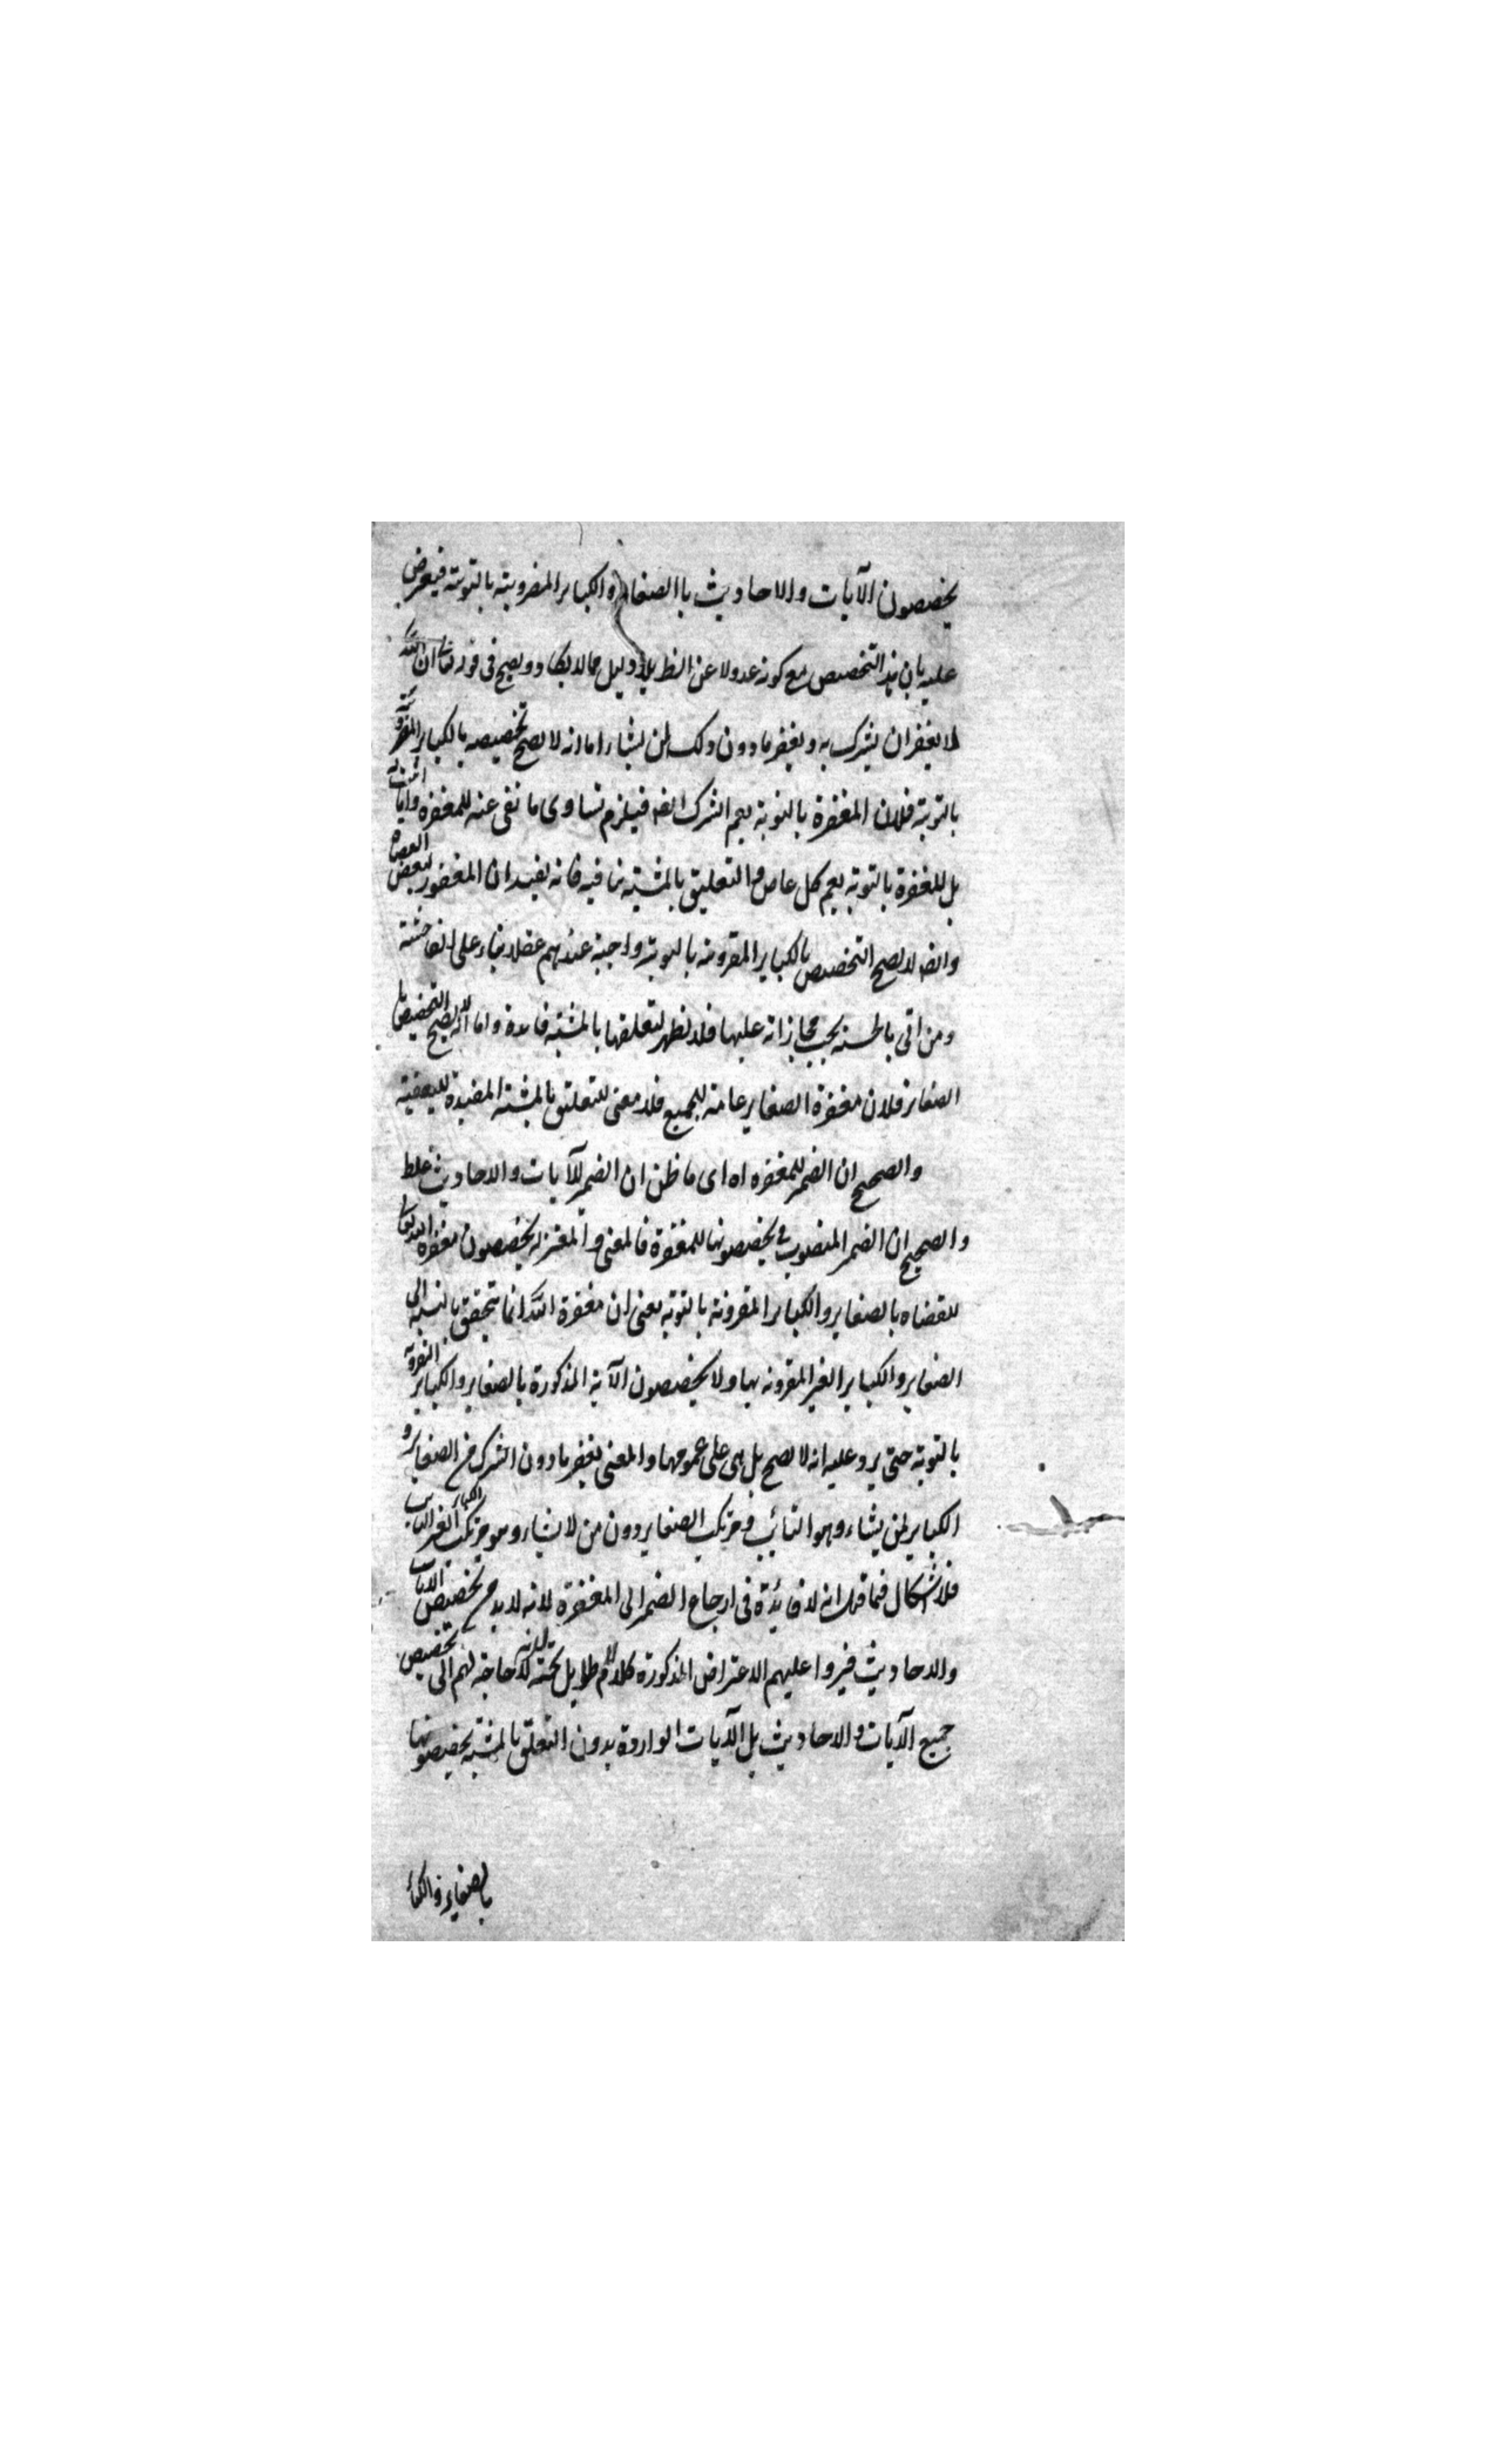 يخصصون الآيات والاحاديث باالصغاير والكباير المقرونة بالتوبة فيعترض
عليه بان هذا التخصيص مع كونه عدولا عن الظ بلا دليل مما لا يكاد ويصح فى قوله تعا ان الله
لا يغفر ان يشرك به ويغفر ما دون ذلك لمن يشاء اما انه لا يصح تخصيصه بالكباير المقرونة
بالتوبة فلان المغفرة بالتوبة يعم الشرك ايضه فيلزم تساوى ما نفى عنه للمغفرة وما اثبت له
بل للغفرة بالتوبة يعم كل عاص والتعليق بالمشية ينافيه فانه يفيد ان المغفور لبعض العصاة
وايضه لا يصح التخصيص بالكباير المقرونة بالتوبة واجبة عندهم عقلا بناء على ان
ومن اتى بالحسنه يجب مجازاته عليها فلا يظهر لتعلقها بالمشية فايدة واما انه لا يصح التخصيص با
الصغاير فلان مغفرة الصغاير عامة للجميع فلا معنى للتعلق بالمشية المفيدة للبعضية
والصحيح ان الضمير للمغفره اه اى ما ظن ان الضمير للآيات والاحاديث غلط
والصحيح ان الضمير المنصوب فى يخصصونها للمغفرة فالمعنى والمعتزلة يخصصون مغفرة الله تعا
للعصاه بالصغاير والكباير المقرونة بالتوبة يعنى ان مغفرة الله انما يتحقق بالنسبة الى
الصغاير والكباير الغير المقرونه بها ولا يخصصون الآية المذكورة بالصغاير والكباير المقرونة
بالتوبة حتى يرد عليه انه لا يصح بل هى على عمومها والمعنى يغفر ما دون الشرك من الصغاير و
الكباير لمن يشاء وهو التائب ومرتكب الصغاير دون من لا يشاء وهو مرتكب الكباير الغير التائب
فلا اشكال فما قيل انه لا فائدة فى ارجاع الضمير الى المغفرة لانه لا بد من تخصيص الآيات
والاحاديث فيروا عليهم الاعتراض المذكورة كلام لا طايل تحته لانه لا حاجة لهم الى تخصيص
جميع الآيات والاحاديث بل الآيات الواردة بدون التعلق بالمشية يخصصونها
بالصغاير والكبا